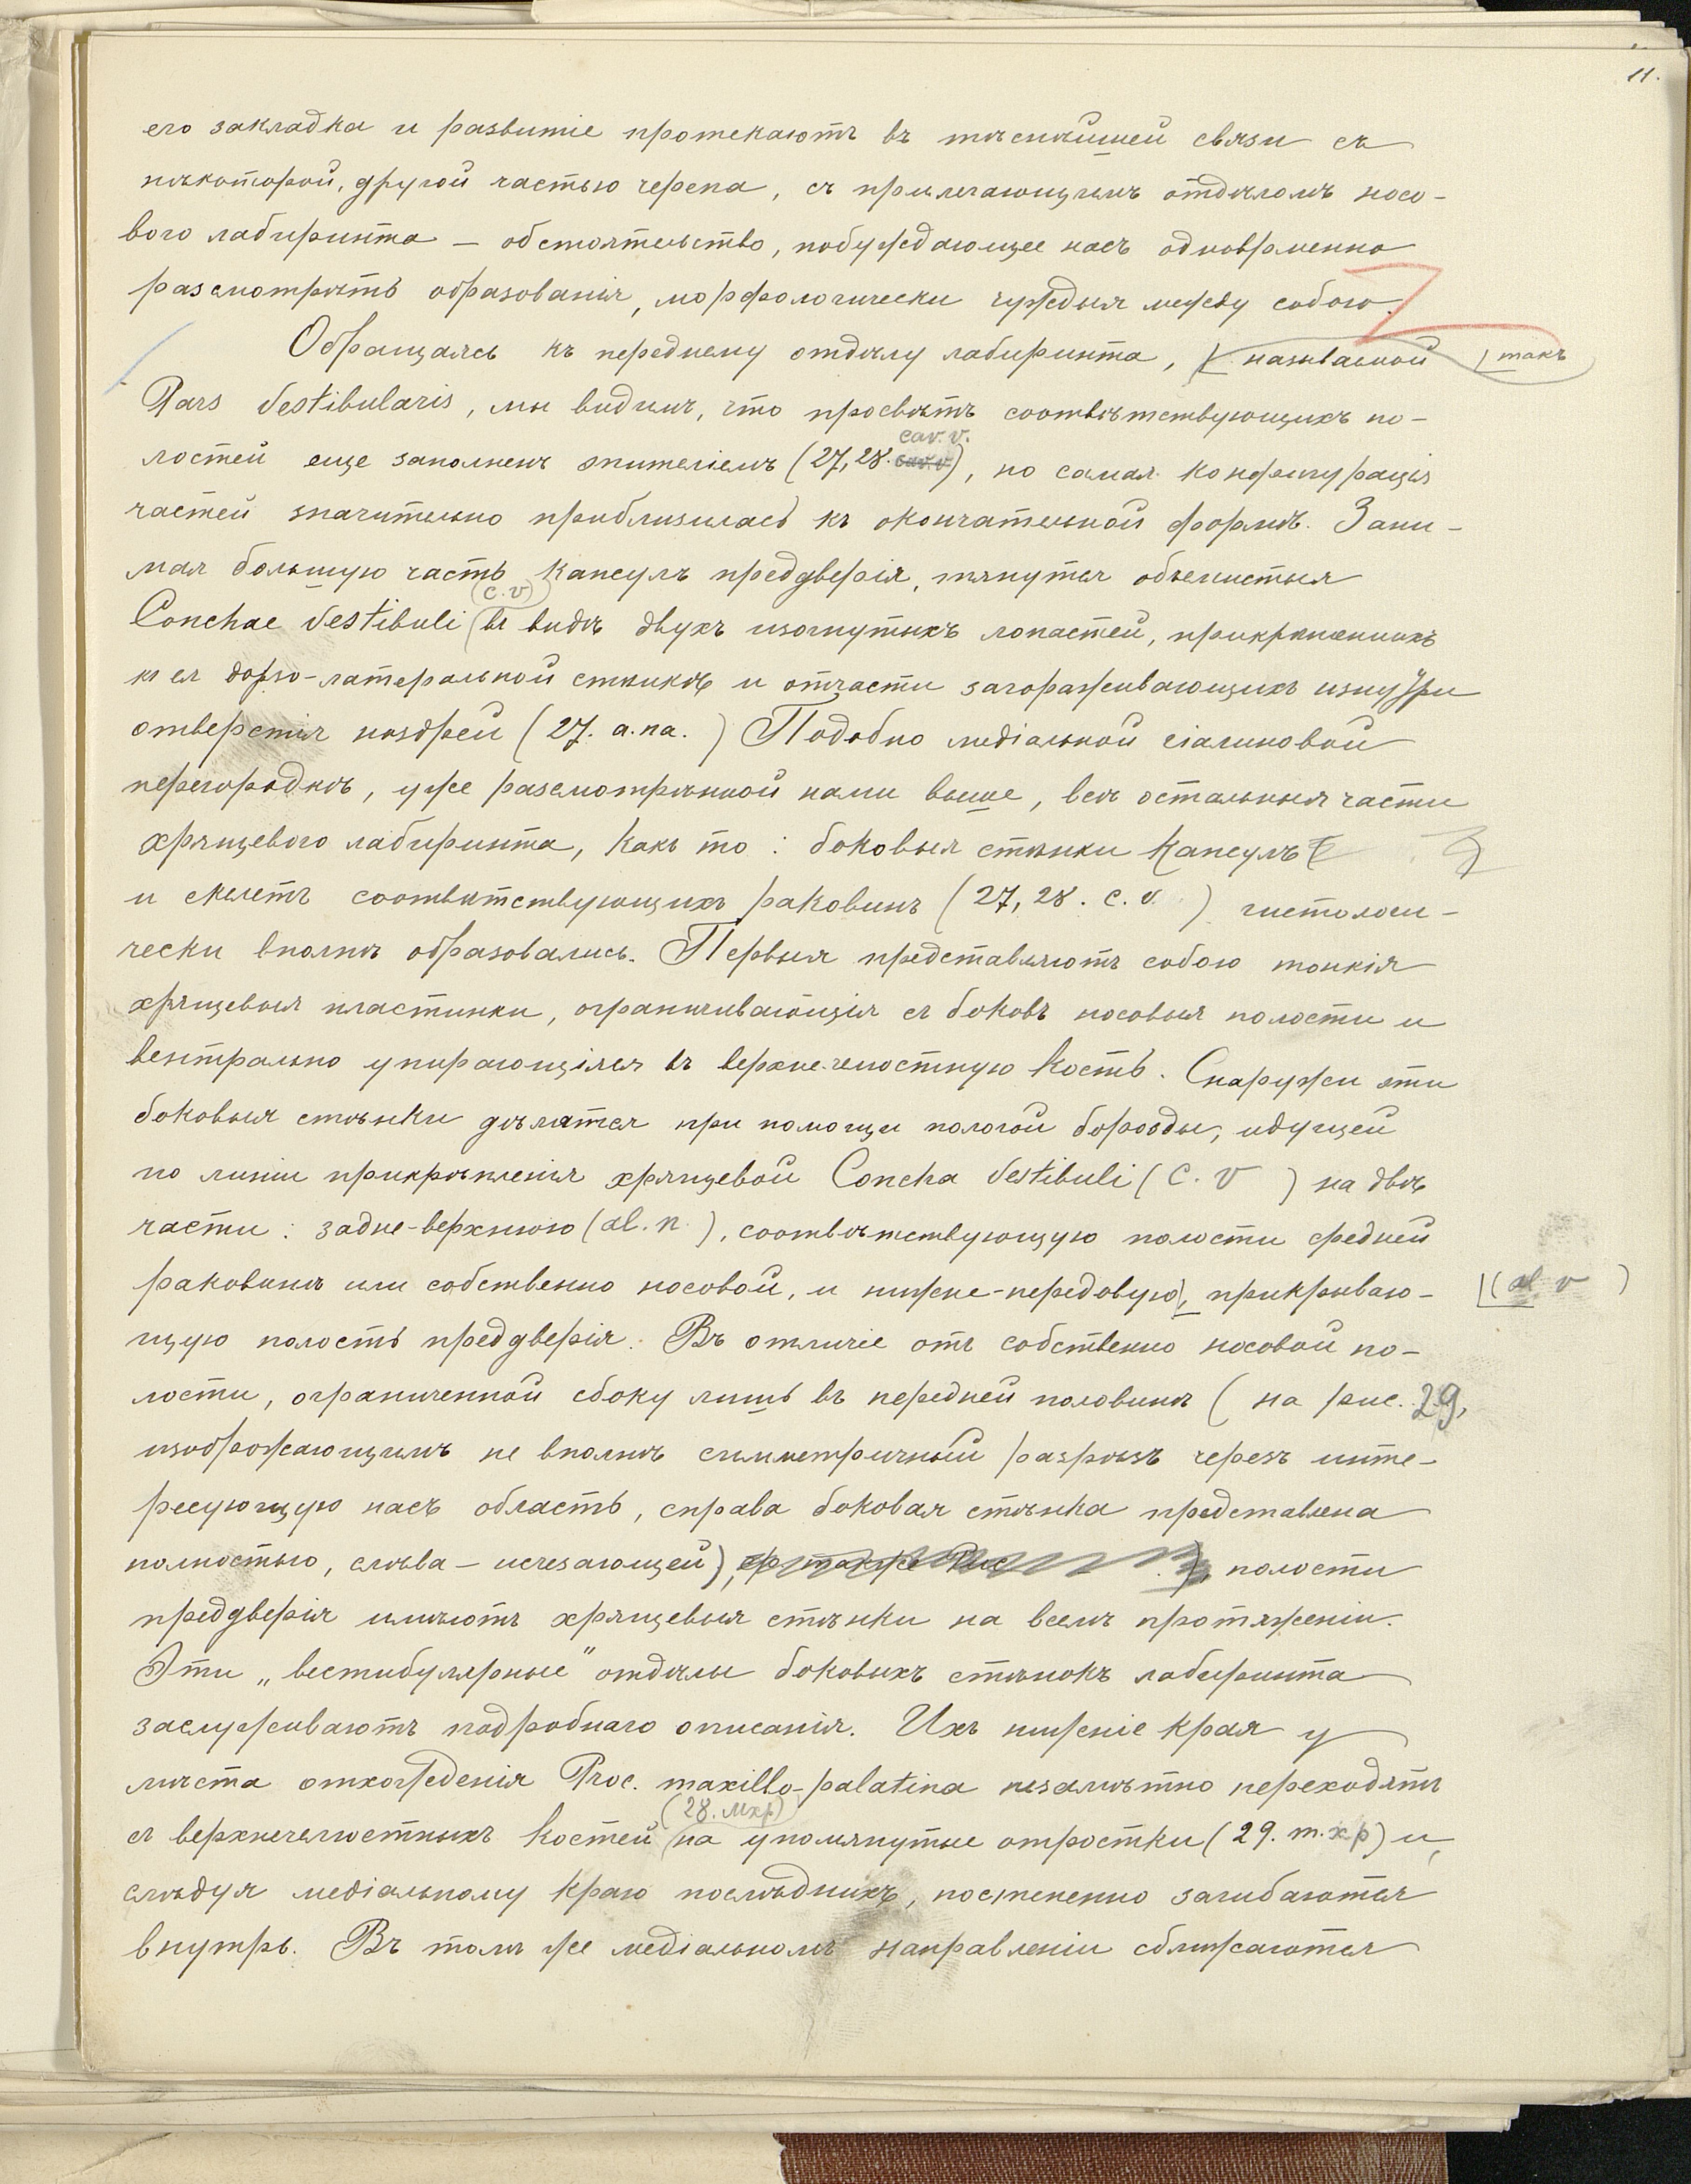 11.
его закладка и развитіе протекаютъ въ тѣснѣйшей связи съ
нѣкоторой, другой частью черепа, съ прилегающимъ отдѣломъ носо-
вого лабиринта — обстоятельство, побуждающее насъ одновременно
разсмотрѣть образованія, морфологически чуждыя между собою.
Обращаясь къ переднему отдѣлу лабиринта, называемой | такъ
Pars vestibularis, мы видимъ, что просвѣтъ соотвѣтствующихъ по-
cav. v.
лостей еще заполненъ эпителіемъ (27, 28. cav. v), но самая конфигурація
частей значительно приблизилась къ окончательной формѣ. Зани-
мая большую часть капсулъ предверія, тянутся объемистыя
(c. v)
Conchae vestibuli въ видѣ двухъ изогнутыхъ лопастей, прикрѣпленныхъ
къ ея дорзо-латеральной стѣнкѣ и отчасти загораживающихъ изнутри
отверстія ноздрей (27. a. na.) Подобно медіальной гіалиновой
перегородкѣ, уже разсмотрѣнной нами выше, всѣ остальныя части
хрящевого лабиринта, какъ то: боковыя стѣнки капсулъ
и скелетъ соотвѣтствующихъ раковинъ (27, 28. c. v. ) гистологи-
чески вполнѣ образовались. Первыя представляютъ собою тонкія
хрящевыя пластинки, ограничивающія съ боковъ носовыя полости и
вентрально упирающіяся въ верхне-челюстную кость. Снаружи эти
боковыя стѣнки дѣлятся при помощи пологой борозды, идущей
по линіи прикрѣпленія хрящевой Concha vestibuli (C. V ) на двѣ
части: задне-верхнюю (al. n. ), соотвѣтствующую полости средней
раковины или собственно носовой, и нижне-передовую, прикрываю- | (al v )
щую полость предверія. Въ отличіе отъ собственно носовой по-
лости, ограниченной сбоку лишь въ передней половинѣ ( на рис. 29,
изображающимъ не вполнѣ симметричный разрѣзъ черезъ инте-
ресующую насъ область, справа боковая стѣнка представлена
полностью, слѣва — исчезающей), полости
предверія имѣютъ хрящевыя стѣнки на всемъ протяженіи.
Эти „вестибулярные“ отдѣлы боковыхъ стѣнокъ лабиринта
заслуживаютъ подробнаго описанія. Ихъ нижніе края у
мѣста отхожденія Proc. maxillo-palatina незамѣтно переходятъ
(28. mxp)
съ верхнечелюстныхъ костей на упомянутые отростки (29. m. xp) и,
слѣдуя медіальному краю послѣднихъ, постепенно загибаются
внутрь. Въ томъ же медіальномъ направленіи сближаются